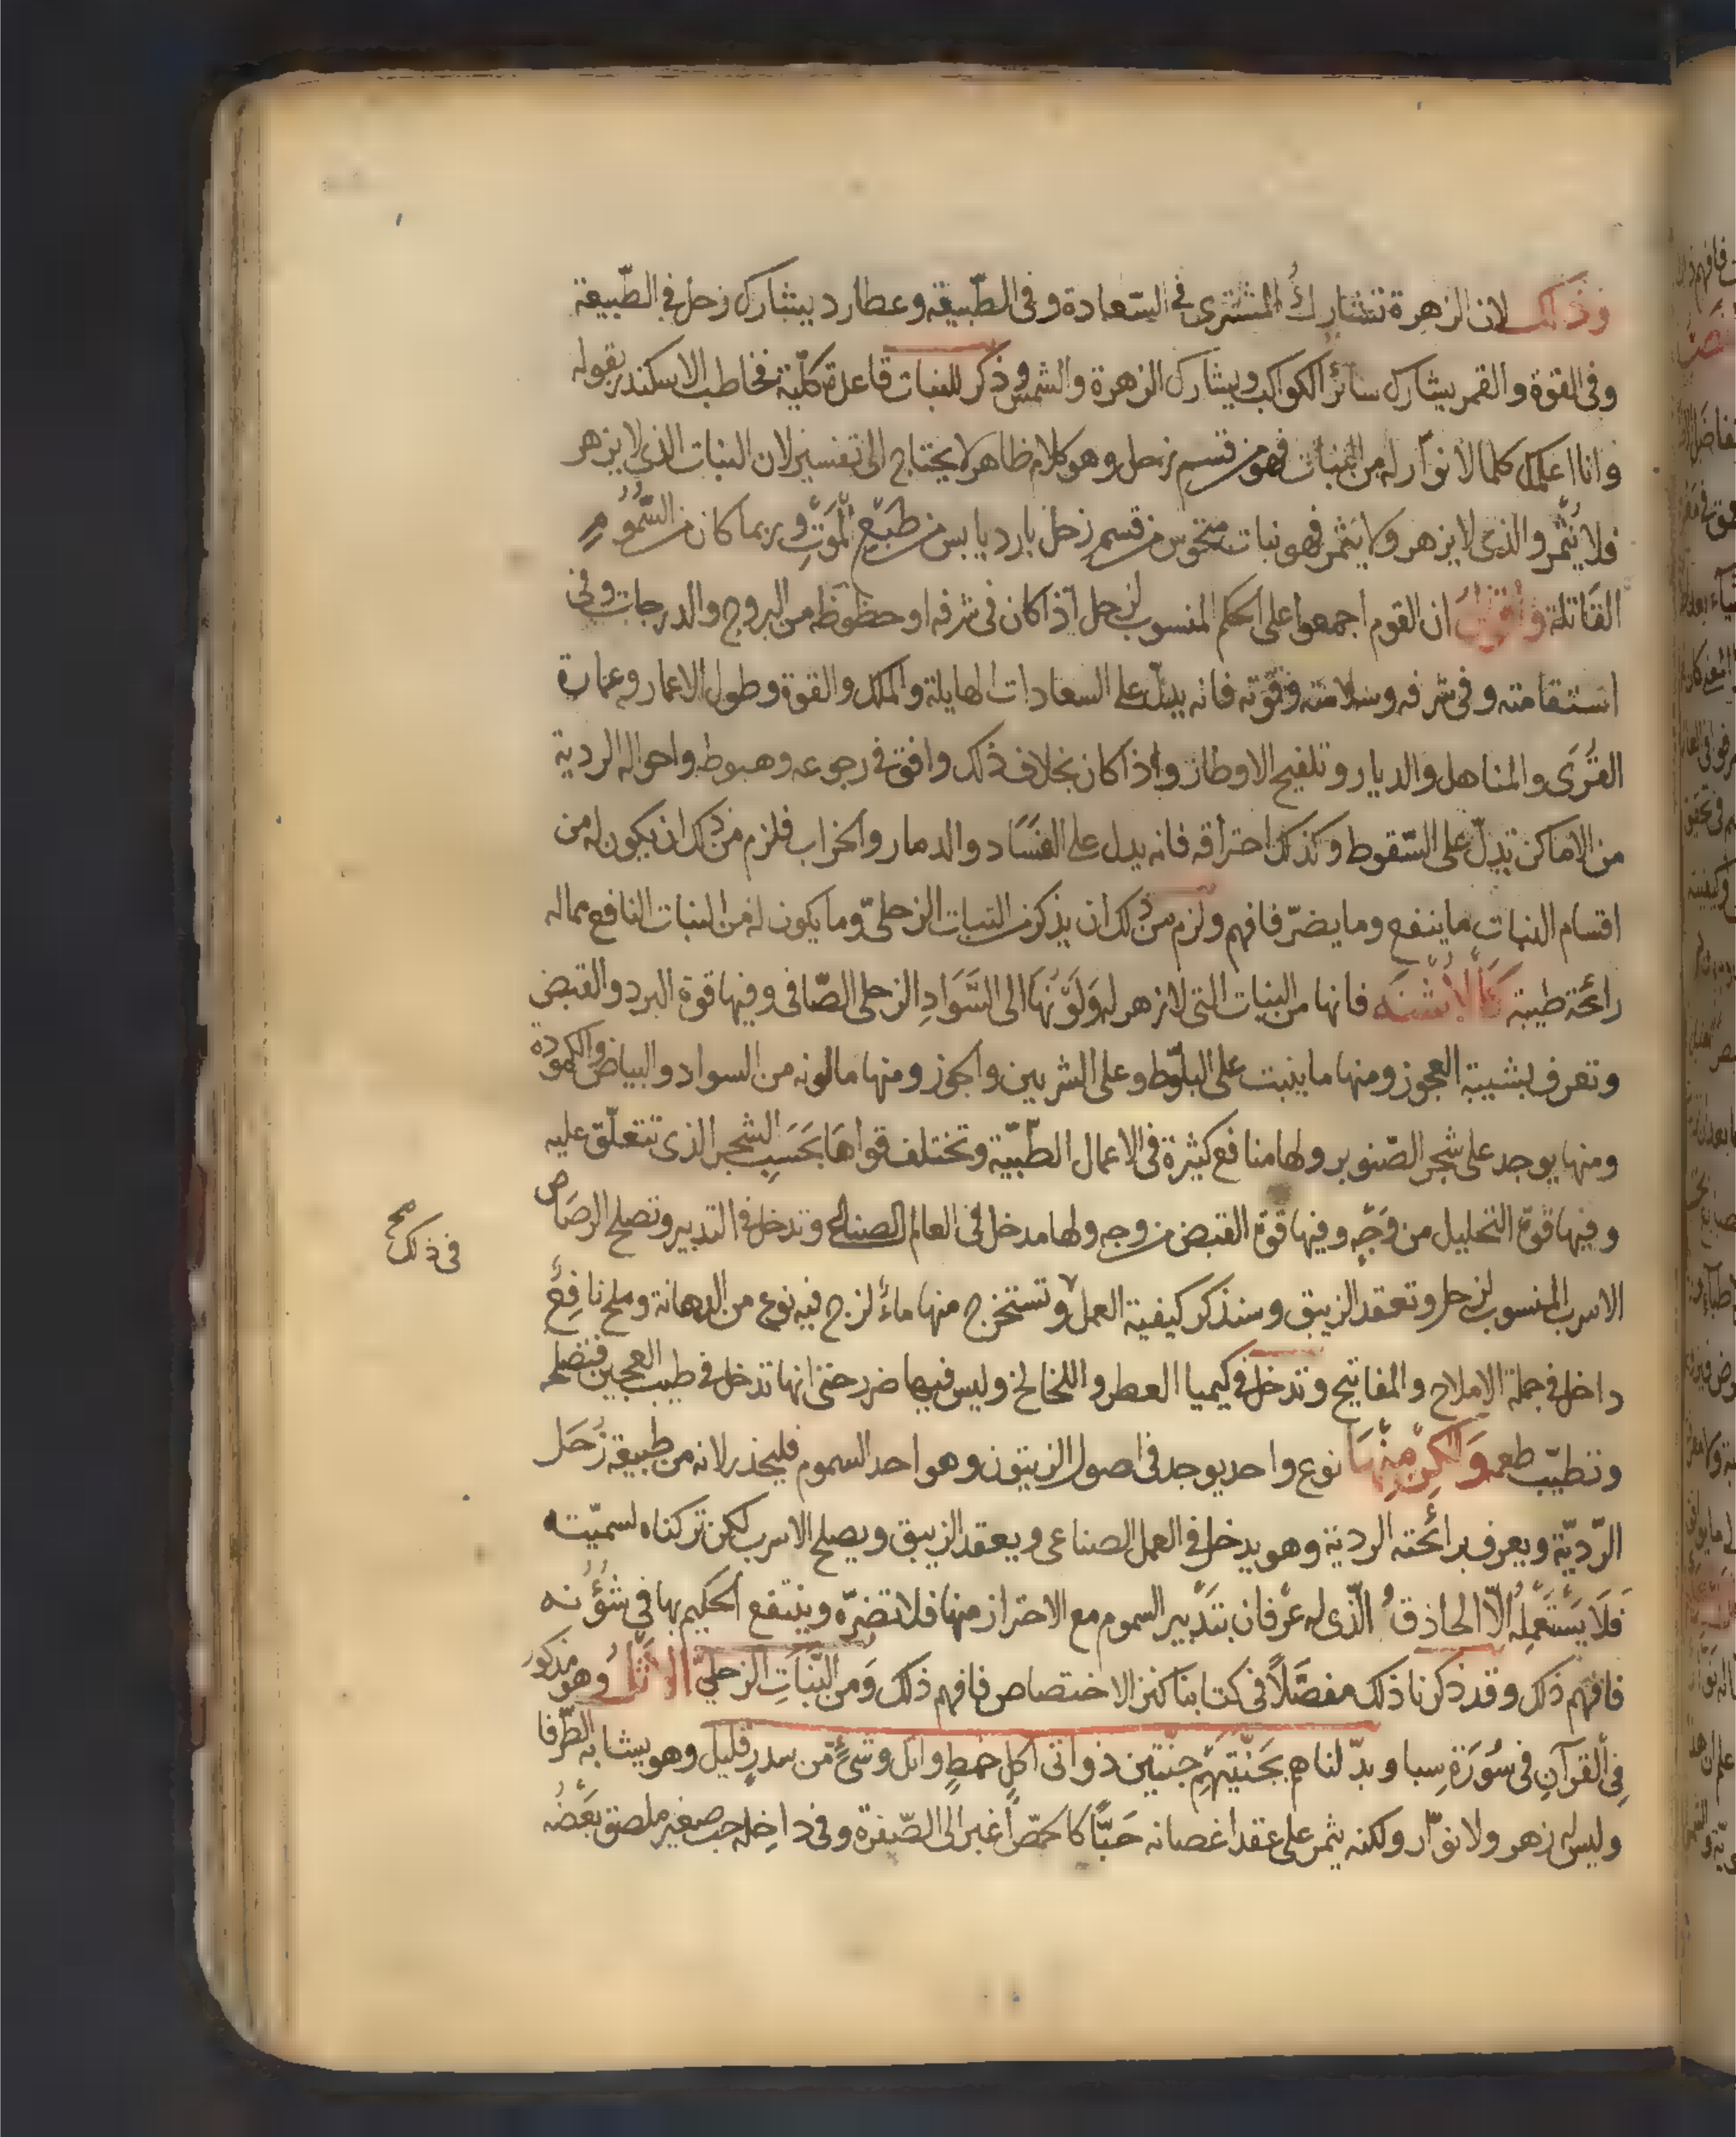 وذلك لان الزهرة تشارك المشترى فى السّعادة وفى الطّبيعة وعطارد يشارك زحل فى الطّبيعة
وفى القوة والقمر يشارك سائر الكواكب ويشارك الزهرة والشمس وذكر للنبات قاعدة كلّية فخاطب الاسكندر بقوله
وانا اعلمك كلما لا نوار له من النبات فهو من قسم زحل وهو كلام ظاهر لا يحتاج الى تفسير لان النبات الذى لا يزهر
فلا يُثمر والذى لا يزهر ولا يثمر فهو نبات منحوس من قسم زحل بارد يابس من طبع الموت وربما كان من السّموم
القاتلة واقول ان القوم اجمعوا على الحكم المنسوب لزحل اذا كان فى شرفه او حظوظه من البروج والدرجات وفى
استقامته وفى شرفه وسلامته وقوّته فانه يدلّ على السعادات الهايلة والملك والقوة وطول الاعمار وعمارة
القُرَى والمناهل والديار وتلقيح الاوطار واذا كان بخلاف ذلك وافق فى رجوعه وهبوطه واحواله الردية
من الاماكن تدلّ على السّقوط وكذلك احتراقه فانه يدل على الفسَاد والدمار والخراب فلزم من ذلك ان يكون له من
اقسام النبات ما ينفع وما يضرّ فافهم ولزم من ذلك ان يذكر من النبات الزحلىّ وما يكون له من النبات النافع مما له
رائحة طيبة كَالاُشْنَه فانها من النبات التى لا زهر له وَلَوْنُهَا الى السَّوَادِ الزحلى الصّافى وفيها قوة البرد والقبض
وتعرف بشيبة العجوز ومنها ما ينبت على البلّوط وعلى الشربين والجوز ومنها ما لونه من السواد والبياض والكمودة
ومنها يوجد على شجر الصّنوبر ولها منافع كثيرة فى الاعمال الطّبيّة وتختلف قواهَا بحَسَبِ الشجر الذى تتعلّق عليه
وفيها قوّة التحليل من وَجْهٍ وفيها قوّة القبض من وجه ولها مدخل فى العالم الصناعى وتدخل فى التدبير وتصلح الرصَاص
فى ذلك صح
الاسرب المنسوب لزحل وتعقد الزيبق وسنذكر كيفية العمل وتستخرج منها ماءً لزج فيه نوع من الدهانة وملح نافِعٌ
داخل فى جملة الاملاح والمفاتيح وتدخل فى كيميا العطر واللخالخ وليس فيها ضرر حتى انها تدخل فى طيب العجين فتصلحه
وتطيّب طعمه وَلكِنْ مِنْهَا نوع واحد يوجد فى اصول الزيتون وهو احد السموم فليحذر لانه من طبيعة زُحَل
الرّديّة ويعرف برائحته الردية وهو يدخل فى العمل الصناعى ويعقد الزيبق ويصلح الاسرب لكن تركناه لسميّته
فَلَا يَسْتَعْمِلهُ الاّ الحاذقُ الّذى له عرْفان بتدْبير السموم مع الاحتراز منها فلا تضرّه وينتفع الحكيم بها فى شُؤُنه
فافهم ذلك وقد ذكرنا ذلك مفصَّلاً فى كتابنا كنز الاختصاص فافهم ذلك وَمن النَّبَاتِ الزحلىّ الاَثْل وهو مذكور
فِى القرآن فى سُورَة سبا وبدّلناهم بجَنّتيهِم جنّتين ذواتى اكلٍ خمطٍ واثل وشىءٍ من سدرٍ قليل وهو يشابه الطّرفا
وليس له زهر ولا نوّار ولكنه يثمر على عقد اغصانه حَبًّا كالحمّص اغبر الى الصّفرة وفى داخله حب صغير ملصق بعَضُه